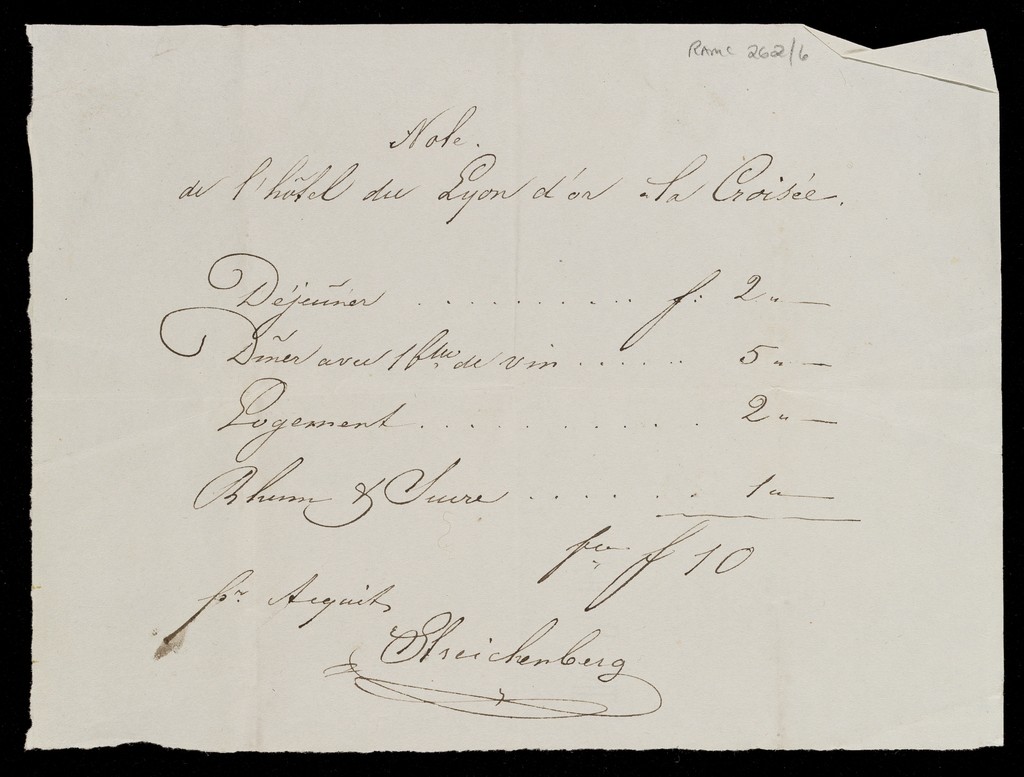 RAMC 262/6
Note.
de l'hôtel du Lyon d'or à la Croisée.
Déjeûner . . . . . . . . . . f: 2 "—
Dîner avec 1 btlle de vin . . . . . . 5 "—
Logement . . . . . . . . . . . 2 "—
Rhum & Sucre . . . . . . 1 "—
f 10
pr. Acquit
Streichenberg